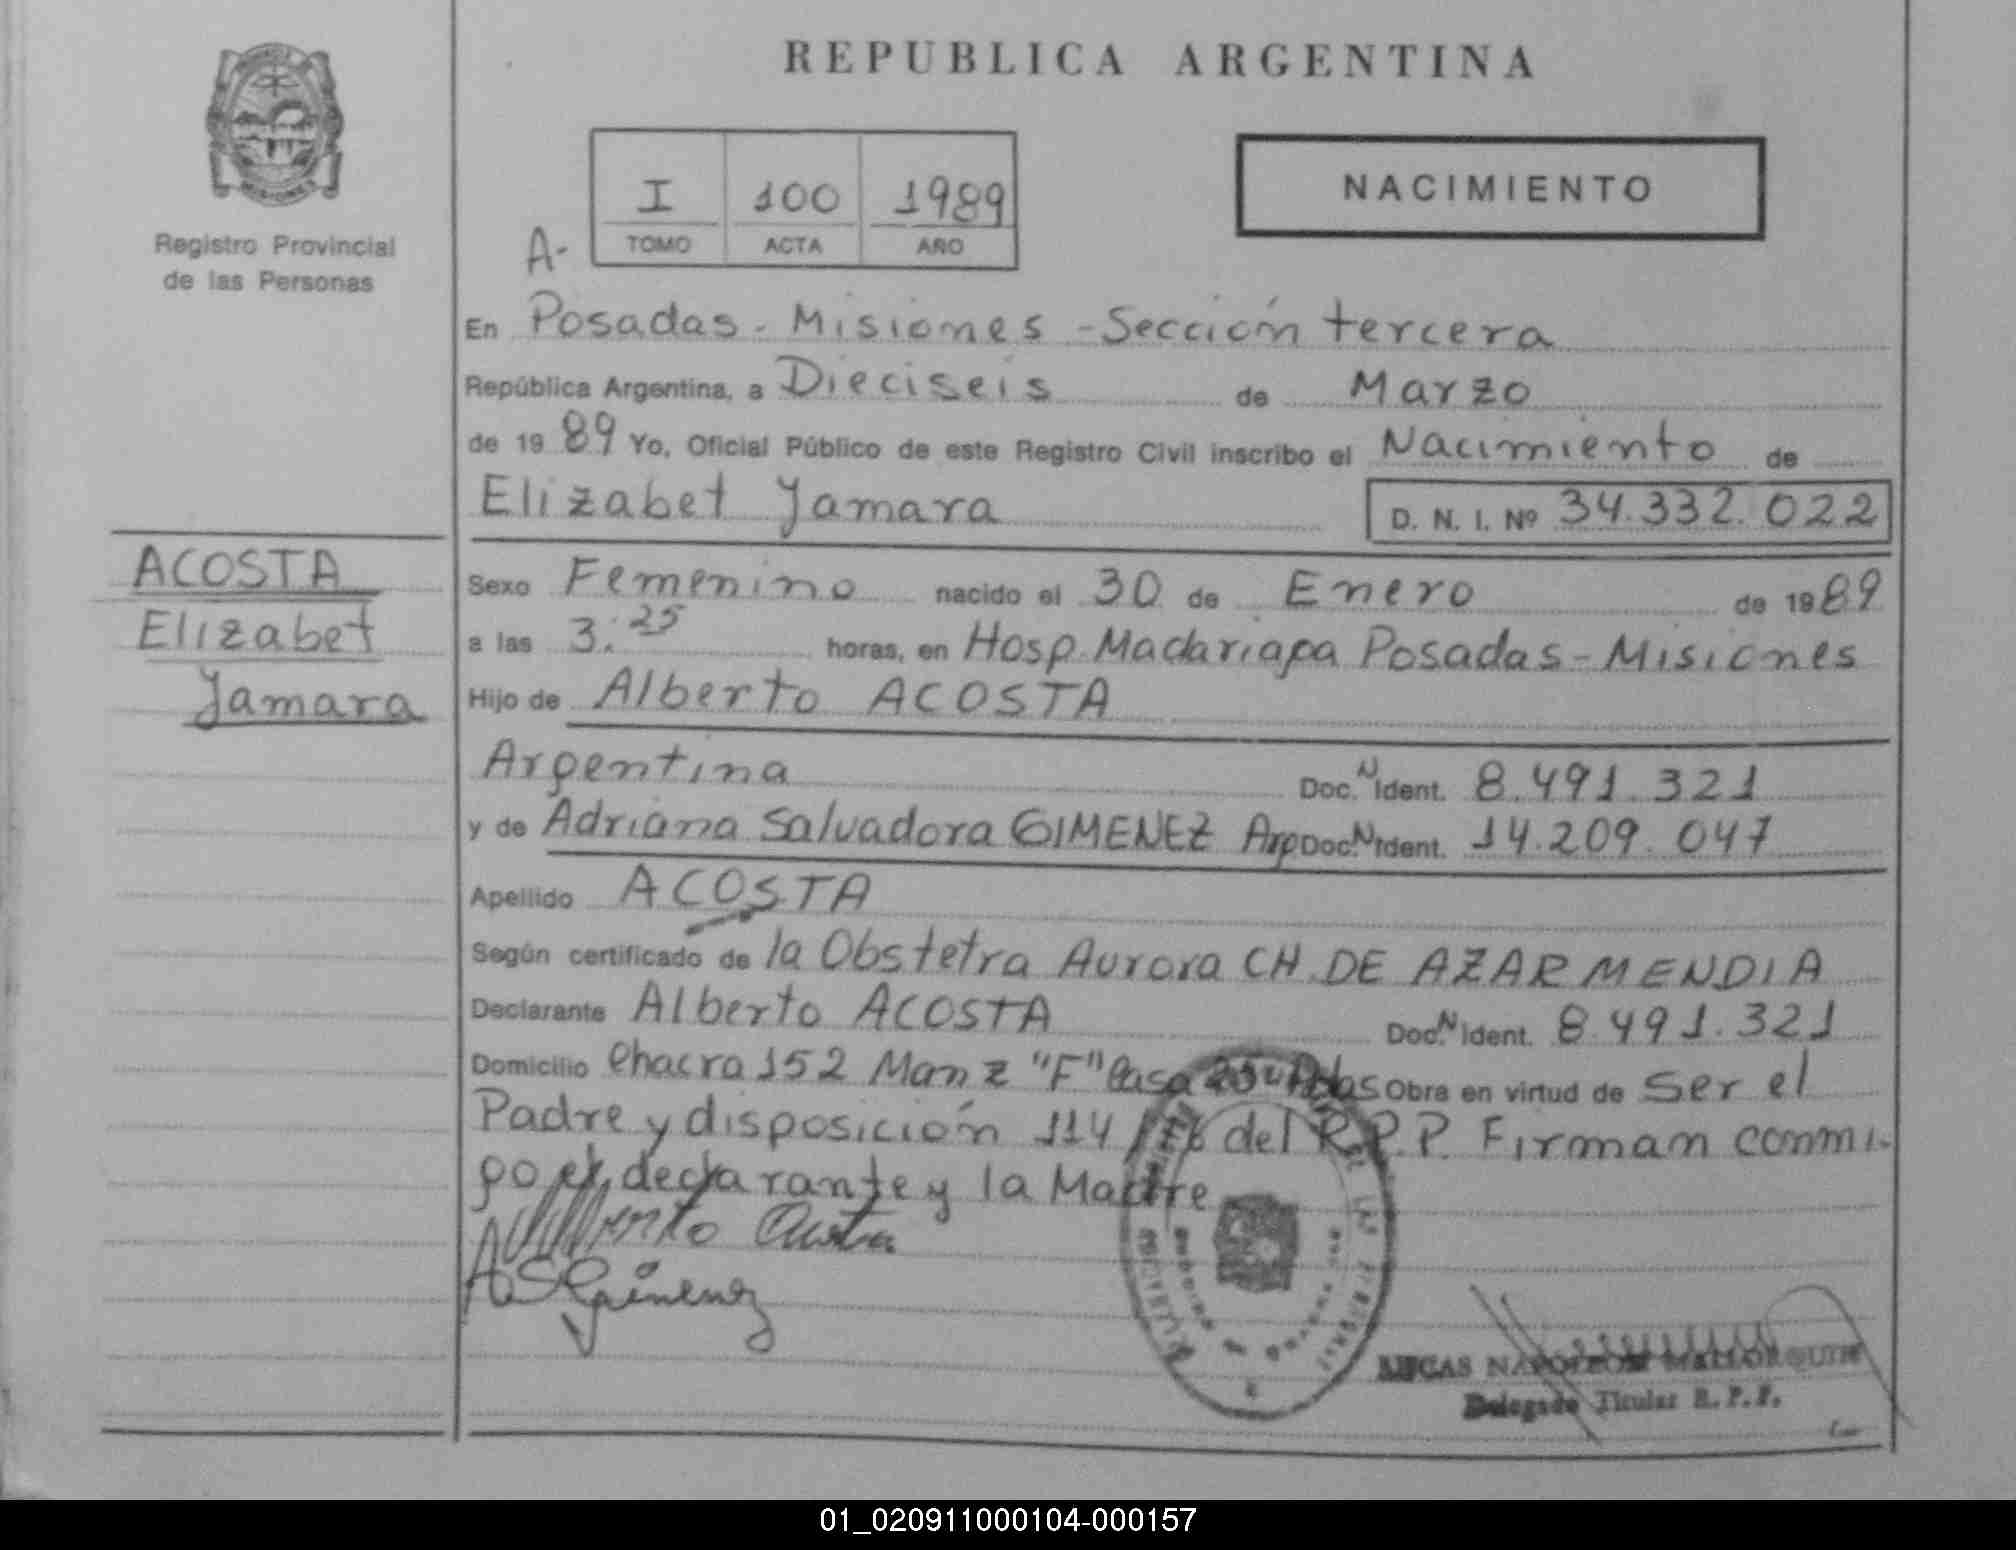 REPUBLICA ARGENTINA
NACIMIENTO
I 100 1989
A- TOMO ACTA AÑO
MISIONES
Registro Provincial
de las Personas
En Posadas - Misiones - Sección tercera
República Argentina, a Dieciseis de Marzo
de 1989 Yo, Oficial Público de este Registro Civil inscribo el Nacimiento de
Elizabet Yamara D. N. I. Nº 34.332.022
ACOSTA
Elizabet
Yamara
Sexo Femenino nacido el 30 de Enero de 1989
a las 3:25 horas, en Hosp. Madariaga Posadas - Misiones
Hijo de Alberto ACOSTA
Argentina Doc. N Ident. 8.491.321
y de Adriana Salvadora GIMENEZ Arg Doc. N Ident. 14.209.047
Apellido ACOSTA
Según certificado de la Obstetra Aurora CH. DE AZARMENDIA
Declarante Alberto ACOSTA Doc. N Ident. 8.491.321
Domicilio Chacra 152 Manz "F" Casa Pdas Obra en virtud de Ser el
Padre y disposición 114 del R.P.P. Firman conmi-
go el declarante y la Madre
Alberto Acosta
AS Gimenez
LUCAS NAPOLEON MALLORQUIN
Delegado Titular R. P. P.
01_020911000104-000157